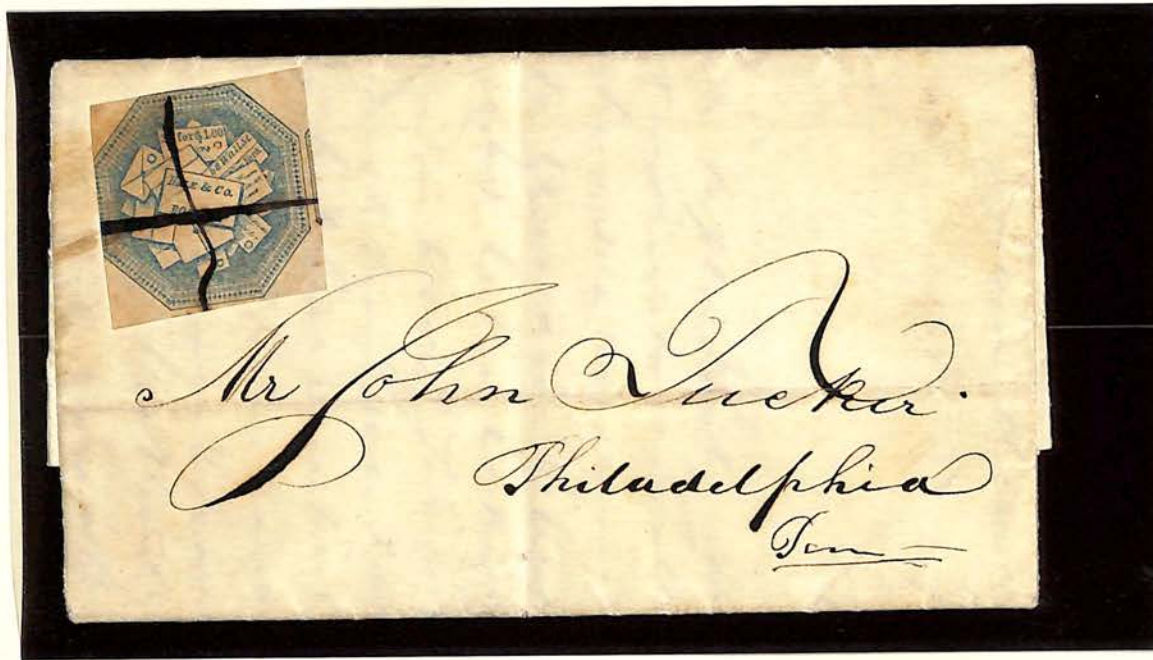 & Co.
Mr John Tucker.
Philadelphia
Penn